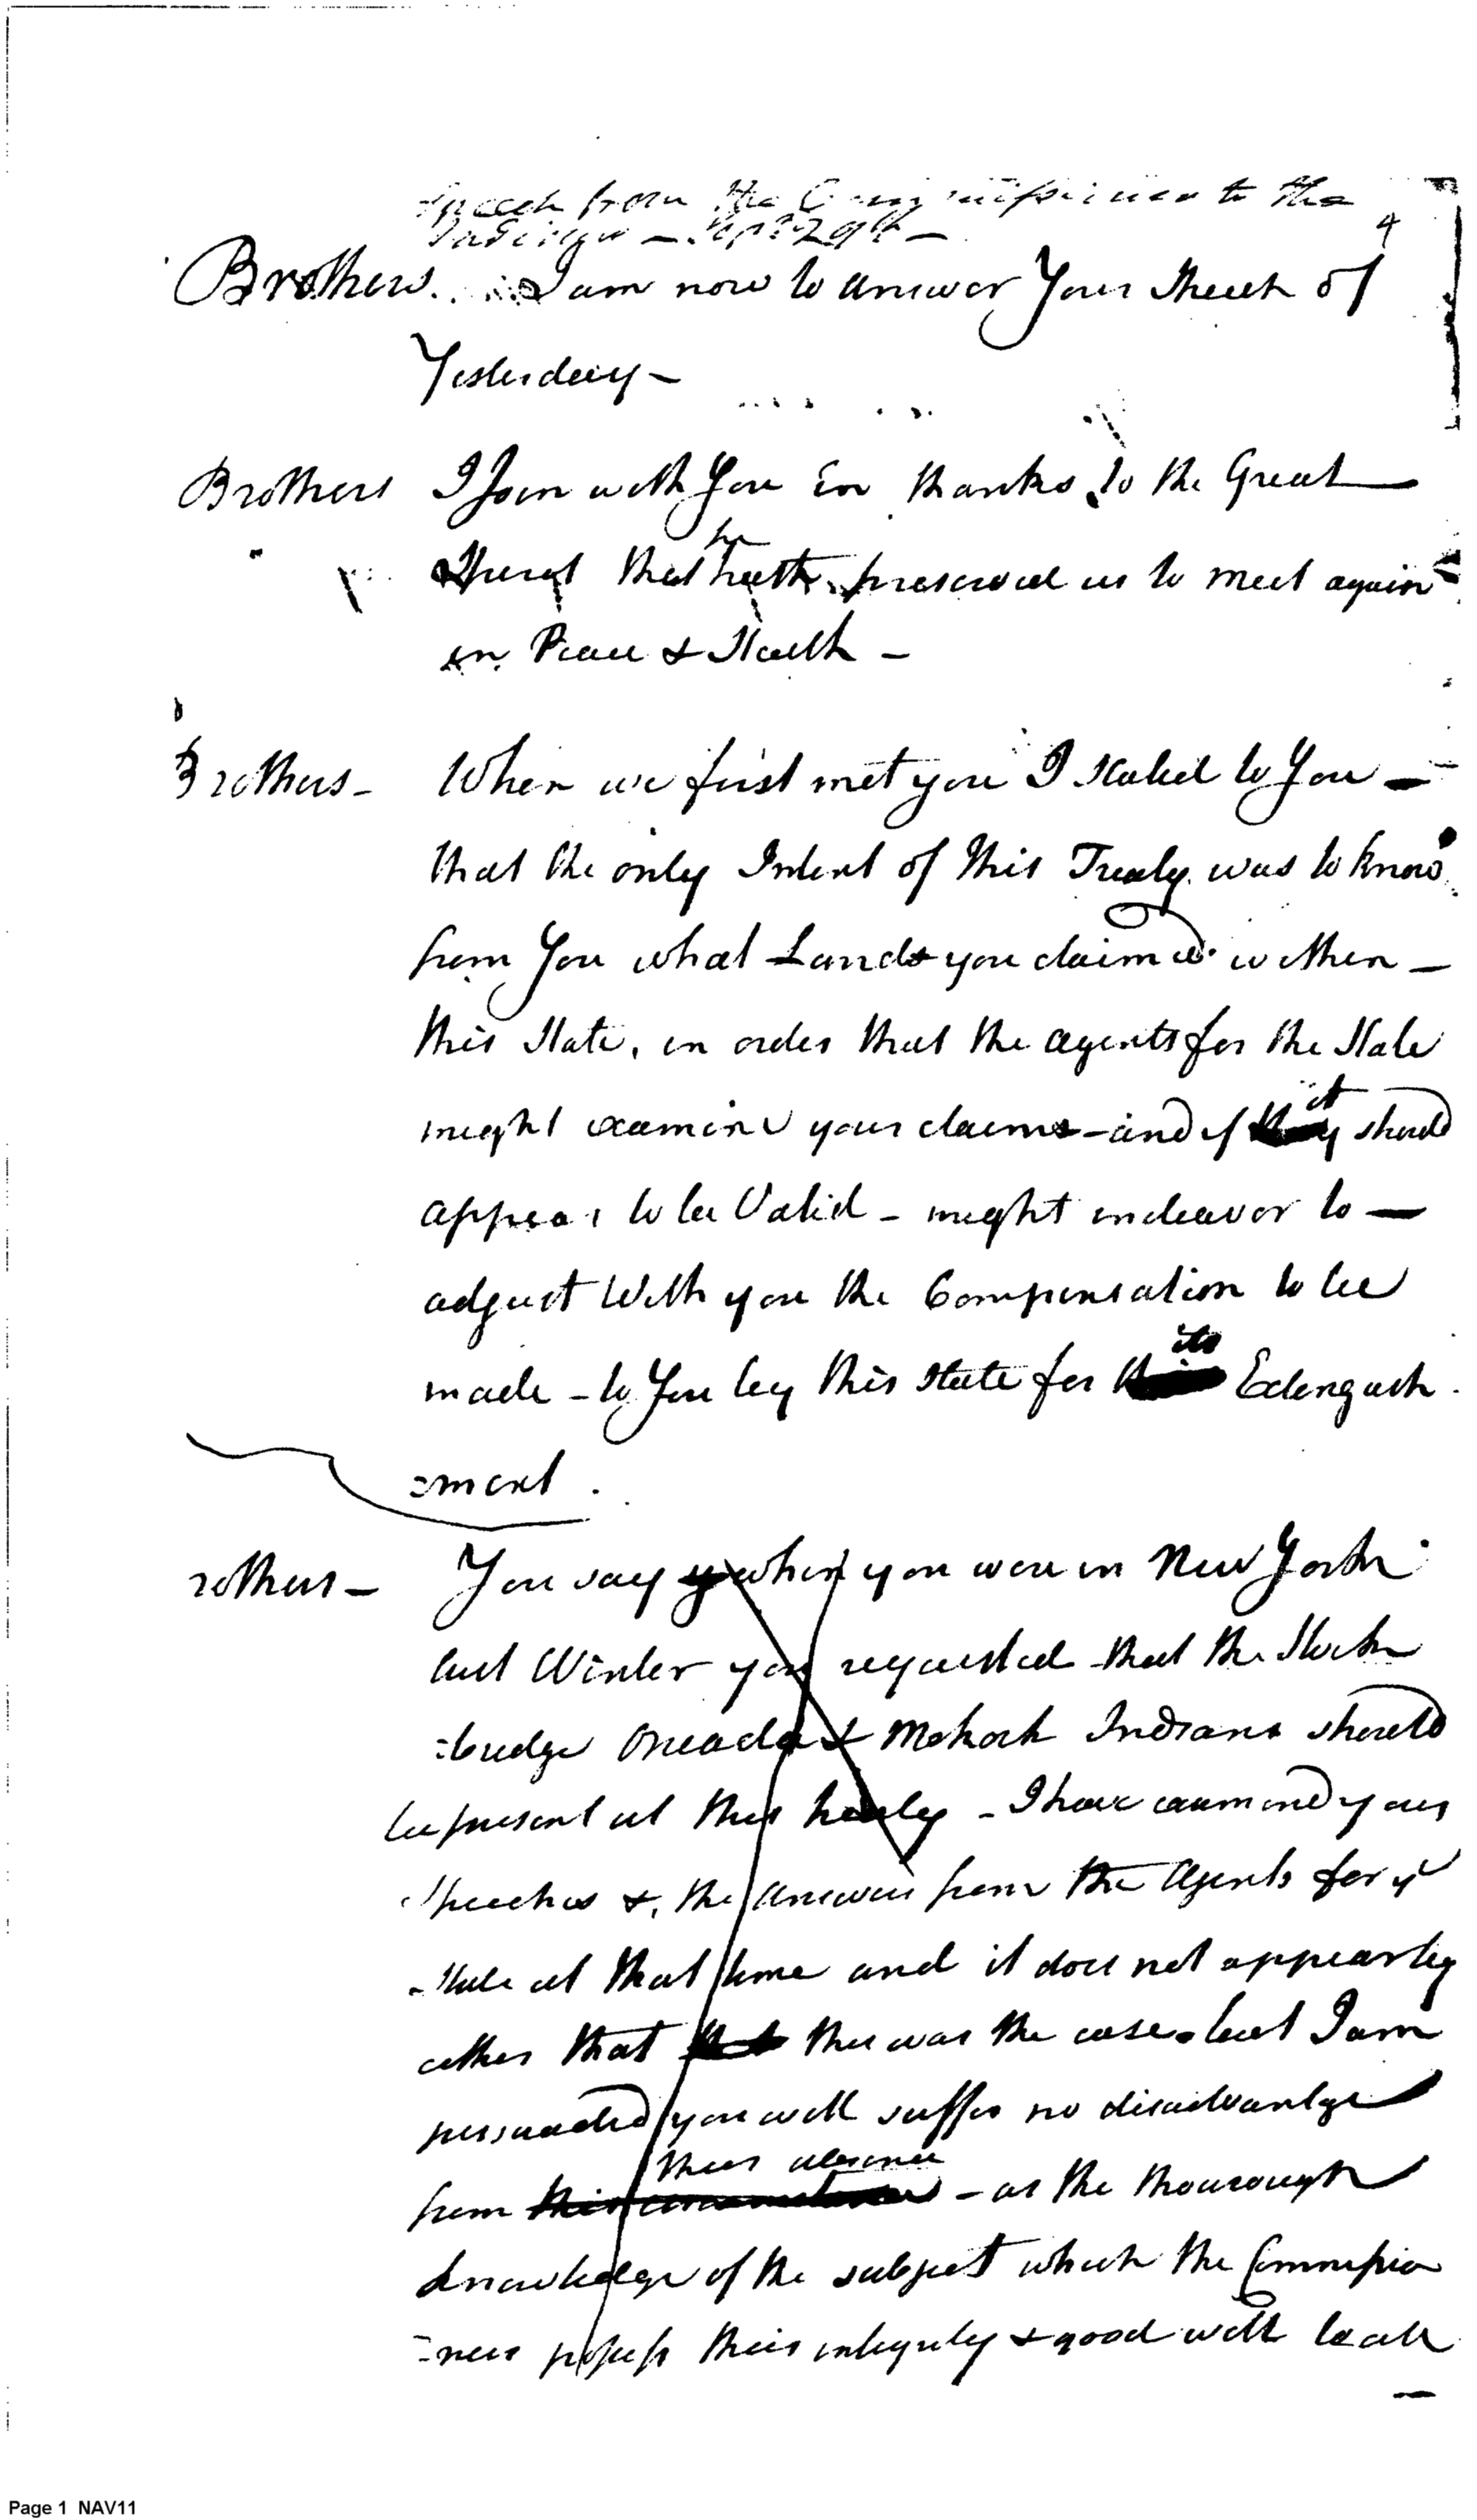 Speech from the Commissioners to the
Indians — Sept 29th —
4
Brothers. I am now to answer Your speech of
Yesterday —
Brothers I Join with You in thanks to the Great
Spirit that he hath preserved us to meet again
in Peace & Health —
Brothers — When we first met you I stated to You —
that the only Intent of this Treaty was to know
from You what Lands you claimed within —
this State, in order that the agents for the State
might examine your claims - and if they it should
appear to be Valid - might endeavor to —
adjust With you the Compensation to be
made - to You by this State for its Extinguish
=ment.
rothers — You say when you were in New York
last Winter you requested that the Stock
=budge Oneada & Mohock Indians should
be present at this treaty - I have examined your
Speeches & the answers from the Agents for ye
State at that time and it does not appear by
either that this was the case. but I am
persuaded you will suffer no disadvantage
from this circumstance their absence - as the thourough
knowledge of the subject which the Commissio
=ners possess their integrity & good will to all
—
Page 1 NAV11